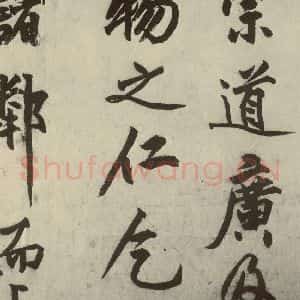 道廣及
物之仁乞
諸鄰而
Shufawang.CN